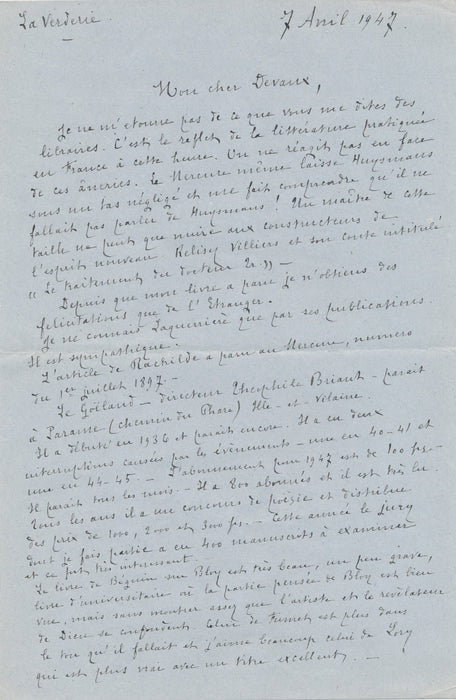 La Verderie.
7 Avril 1947.
Mon cher Devaux,
Je ne m'étonne pas de ce que vous me dites des
libraires. C'est le reflet de la littérature pratiquée
en France à cette heure. On ne réagit pas en face
de ces âneries. Le Mercure même laisse Huysmans
sous un tas négligé et me fait comprendre qu'il ne
fallait pas parler de Huysmans ! Un maître de cette
taille ne peut que nuire aux constructeurs de
l'esprit nouveau. Relisez Villiers et son conte intitulé
" Le traitement du docteur Tr. )) —
Depuis que mon livre a paru je n'obtiens des
félicitations que de l'Etranger.
Je ne connais Laquerrière que par ses publications.
Il est sympathique.
L'article de Rachilde a paru au Mercure, numéro
du 1er juillet 1897. —
Le Goéland — directeur Théophile Briant — paraît
à Paramé (chemin du Phare) Ille-et-Vilaine.
Il a débuté en 1936 et paraît encore. Il a eu deux
interruptions causées par les évènements — une en 40-41 et
une en 44-45. — L'abonnement pour 1947 est de 100 frs. —
Il paraît tous les mois. — Il a 800 abonnés et il est très lu.
Tous les ans il a un concours de poésie et distribue
des prix de 1000, 2000 et 3000 frs. — Cette année le Jury
dont je fais partie a eu 400 manuscrits à examiner
et ce fut très intéressant.
Le livre de Béguin sur Bloy est très beau, un peu grave,
livre d'universitaire où la partie pensée de Bloy est bien
vue, mais sans montrer assez que l'artiste et le révélateur
de Dieu se confondent. Celui de Fumet est plus dans
le ton qu'il fallait et j'aime beaucoup celui de Lory
qui est plus vrai avec un titre excellent. —